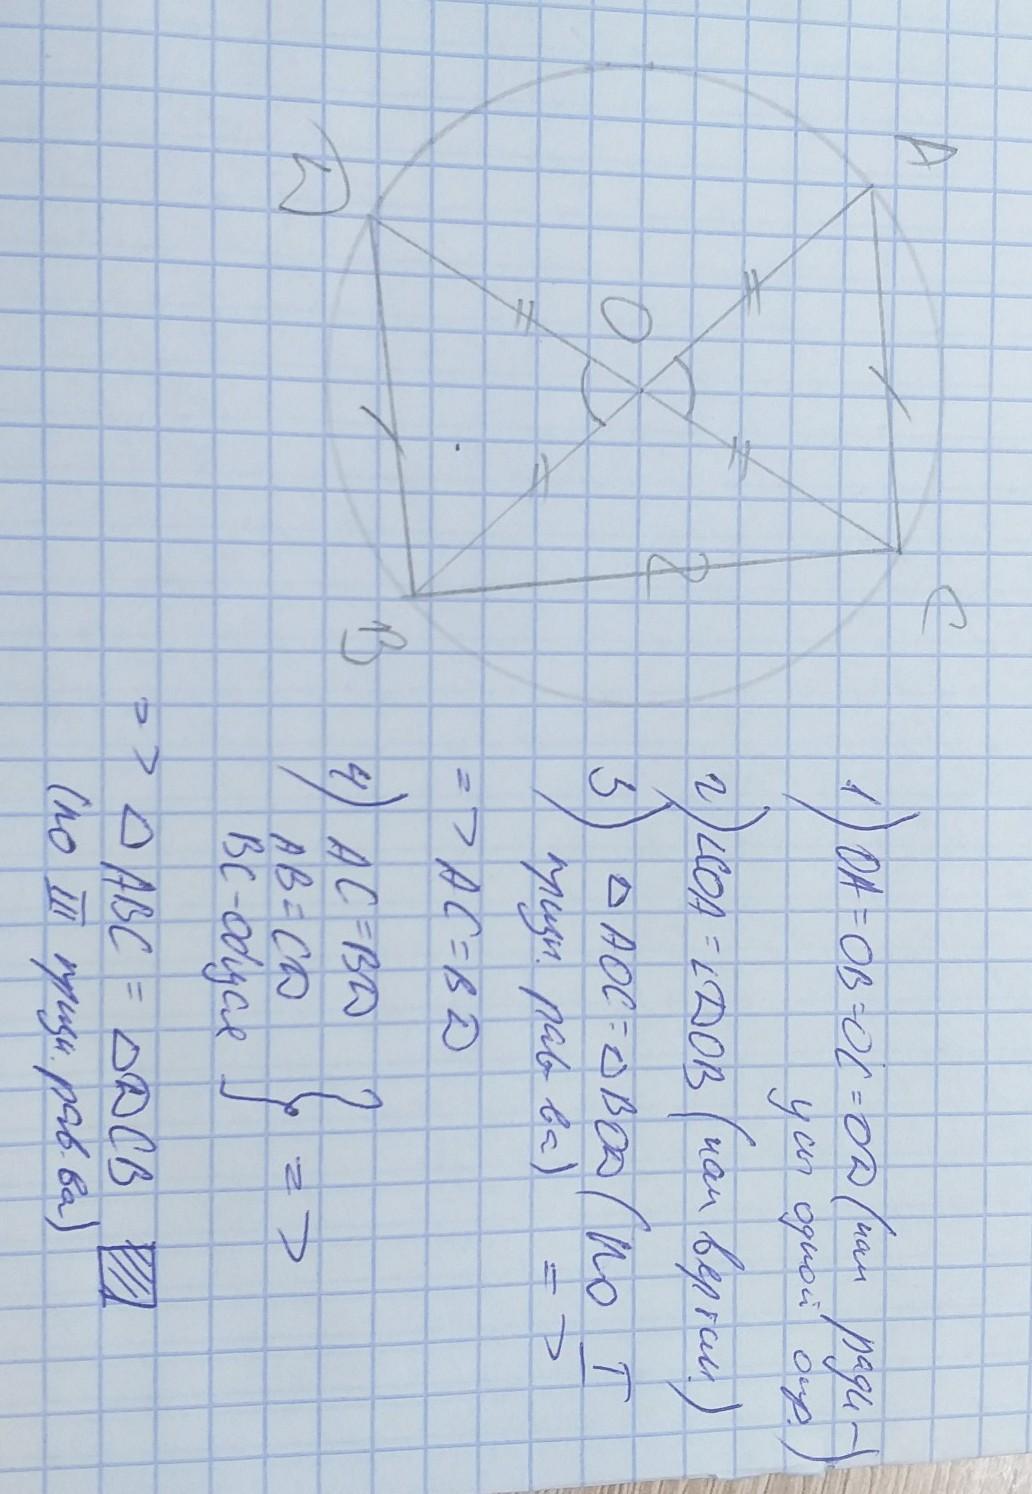 A
C
O
D
B
1) OA=OB=OC=OD (как ради-
усы одной окр.)
2) ∠COA = ∠DOB (как вертик.)
3) △AOC = △BOD (по I
призн. рав-ва) =>
=> AC=BD
4) AC=BD
AB=CD
BC-общая } =>
=> △ABC = △DCB
(по III призн. рав-ва)